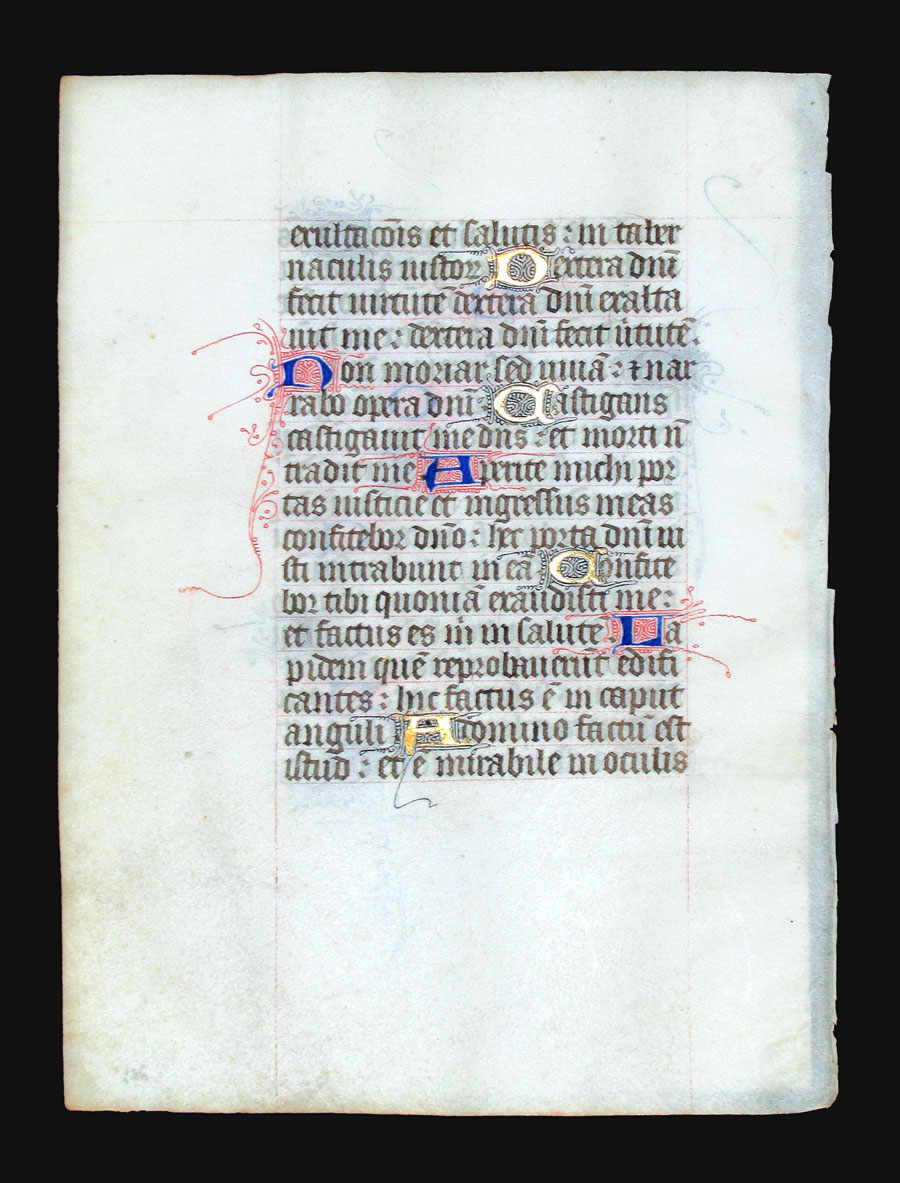 exultacōis et salutis : in taber
naculis iustoꝝ Dextera dn̄i
fecit uirtutē dextera dn̄i exalta
uit me : dextera dn̄i fecit ùtutē :
Non moriar sed uiuā : ⁊ nar
rabo opera dn̄i Castigans
castigauit me dn̄s : et morti n̄
tradit me Aperite michi por
tas iusticie et ingressus in eas
confitebor dn̄o : hec porta dn̄i iu
sti intrabunt in eā Confite
bor tibi quoniā exaudisti me :
et factus es m̄ in salutē : La
pidem quē reprobauerūt edifi
cantes : hic factus ē in caput
anguli A domino factū est
istud : et ē mirabile in oculis